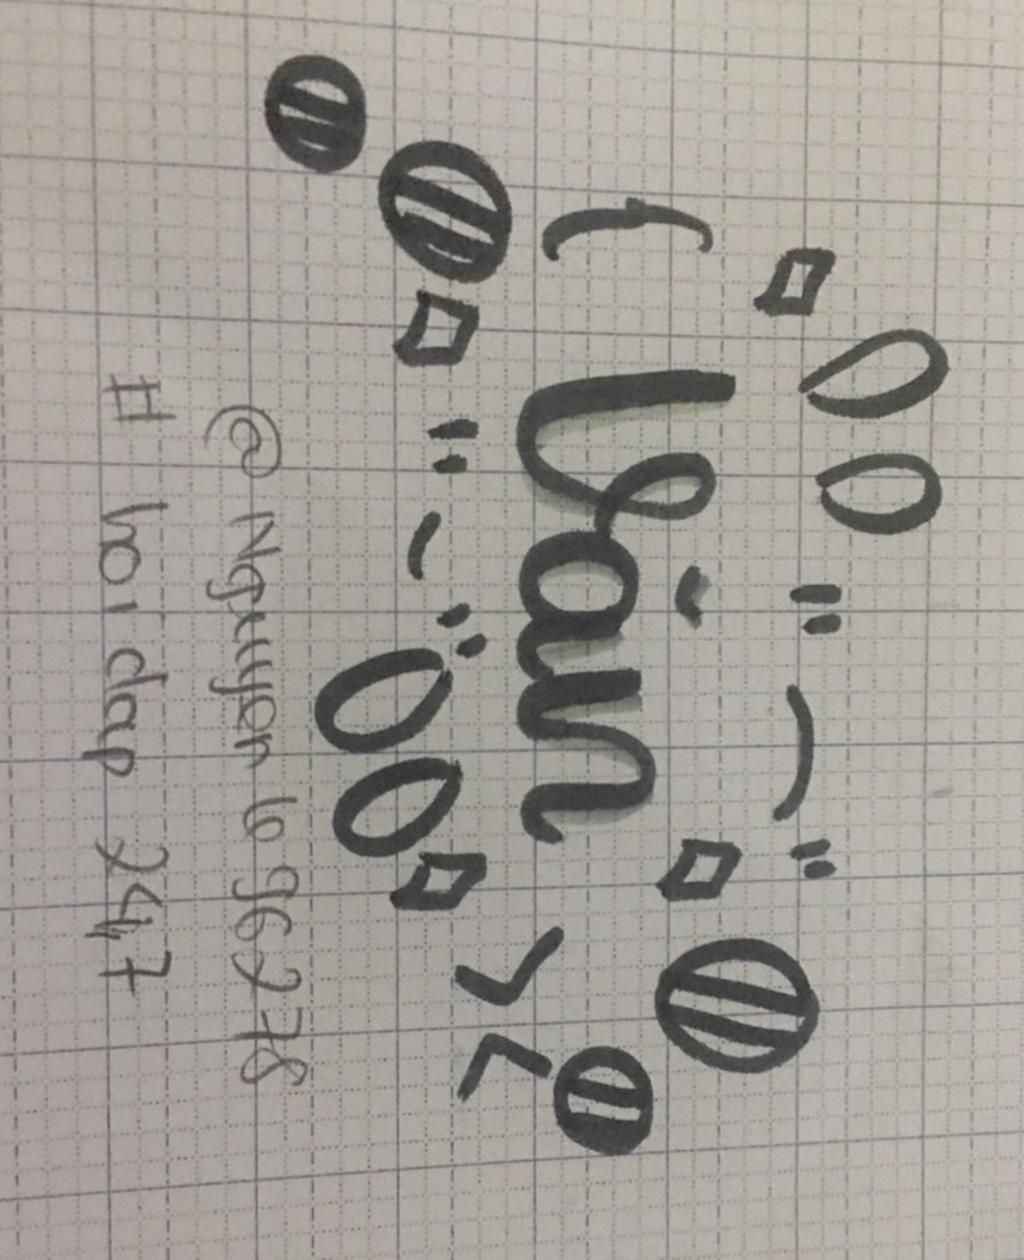 Vân
@ Nguyen 1o 96278
# hoi dap 247